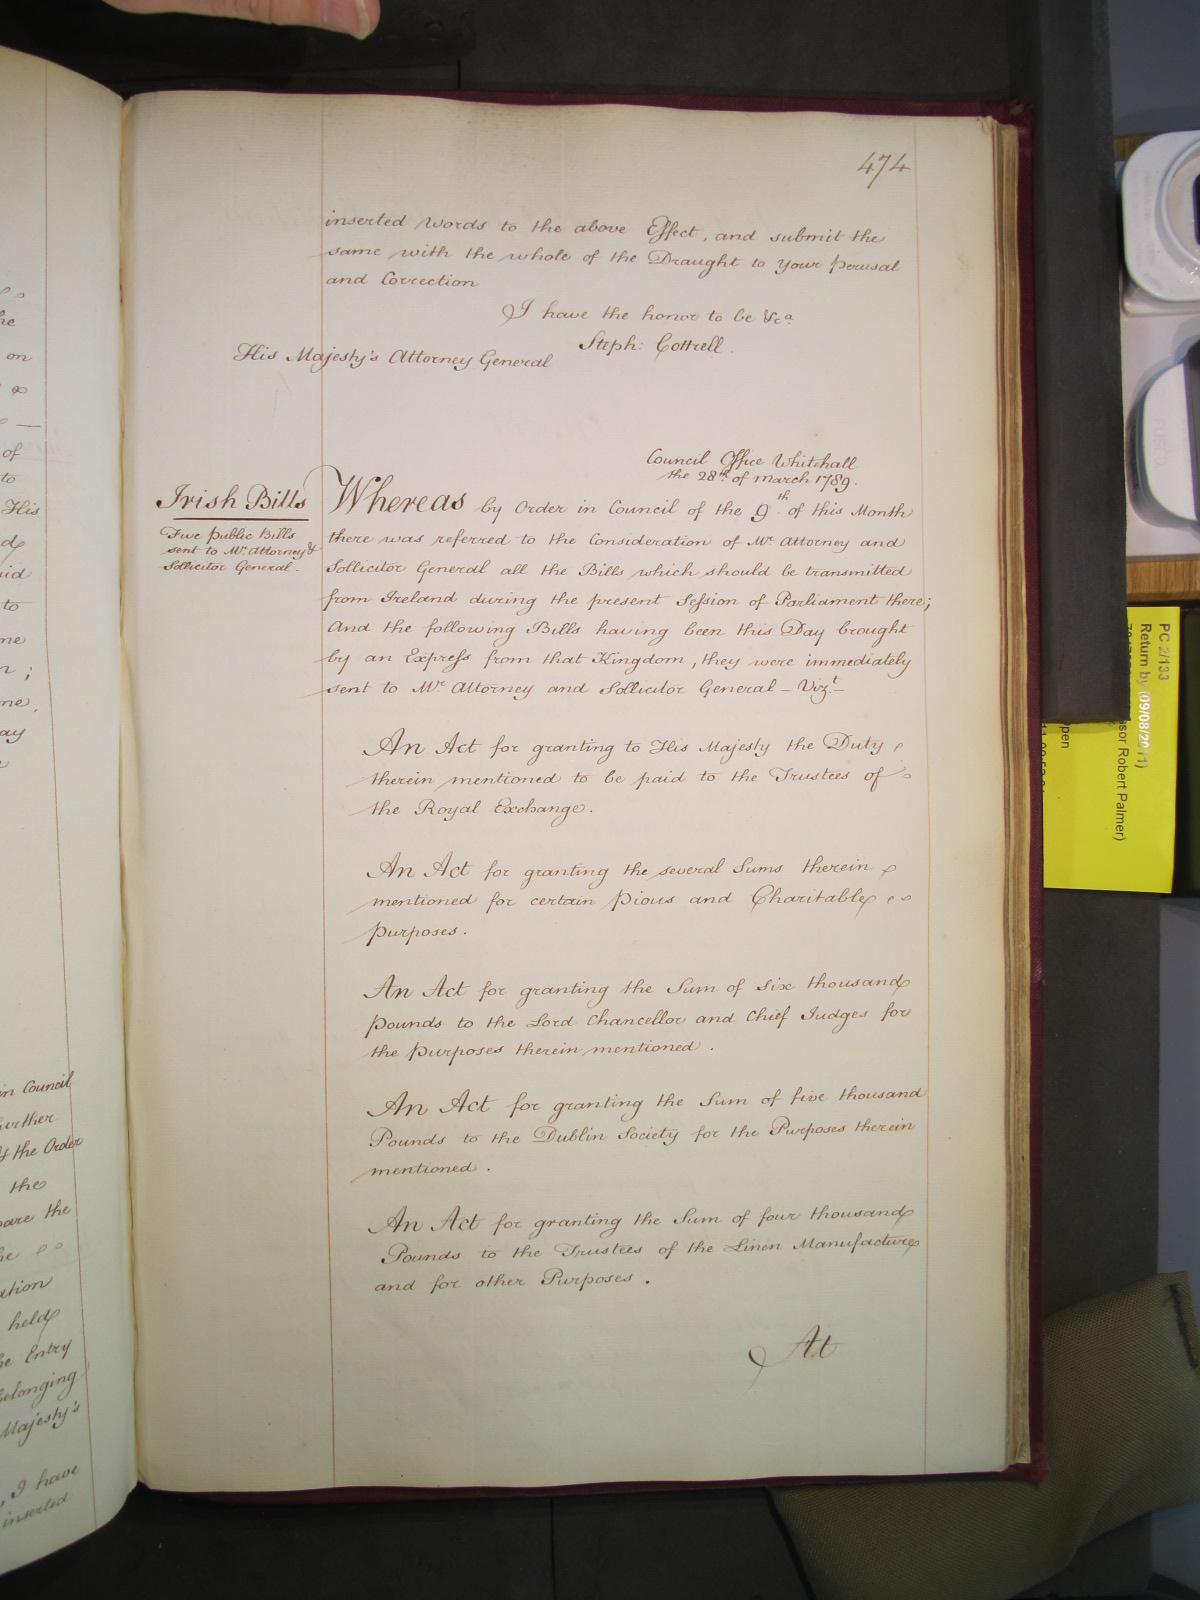 474
inserted words to the above Effect, and submit the
same with the whole of the Draught to your perusal
and Correction
I have the honor to be &ca
Steph: Cottrell.
His Majesty's Attorney General
Council Office Whitehall
the 28th of March 1789.
Irish Bills
Five public Bills
sent to Mr Attorney &
Sollicitor General.
Whereas by Order in Council of the 9th of this Month
there was referred to the Consideration of Mr Attorney and
Sollicitor General all the Bills which should be transmitted
from Ireland during the present Session of Parliament there;
And the following Bills having been this Day brought
by an Express from that Kingdom, they were immediately
sent to Mr Attorney and Sollicitor General – Vizt –
An Act for granting to His Majesty the Duty
therein mentioned to be paid to the Trustees of
the Royal Exchange.
An Act for granting the several Sums therein
mentioned for certain Pious and Charitable
Purposes.
An Act for granting the Sum of six thousand
Pounds to the Lord Chancellor and Chief Judges for
the Purposes therein mentioned.
An Act for granting the Sum of five thousand
Pounds to the Dublin Society for the Purposes therein
mentioned.
An Act for granting the Sum of four thousand
Pounds to the Trustees of the Linen Manufacture
and for other Purposes.
At
on
of
to
His
to
in Council
further
the Order
the
the
held
Entry
belonging
Majesty's
I have
inserted
PC 2/133
Return by (09/08/2011)
Robert Palmer)